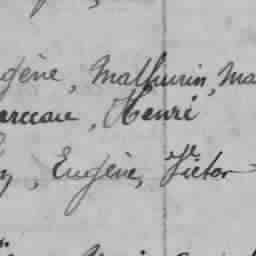 gène, Mathurin, Ma
arceau, Henri
y, Eugène, Victor